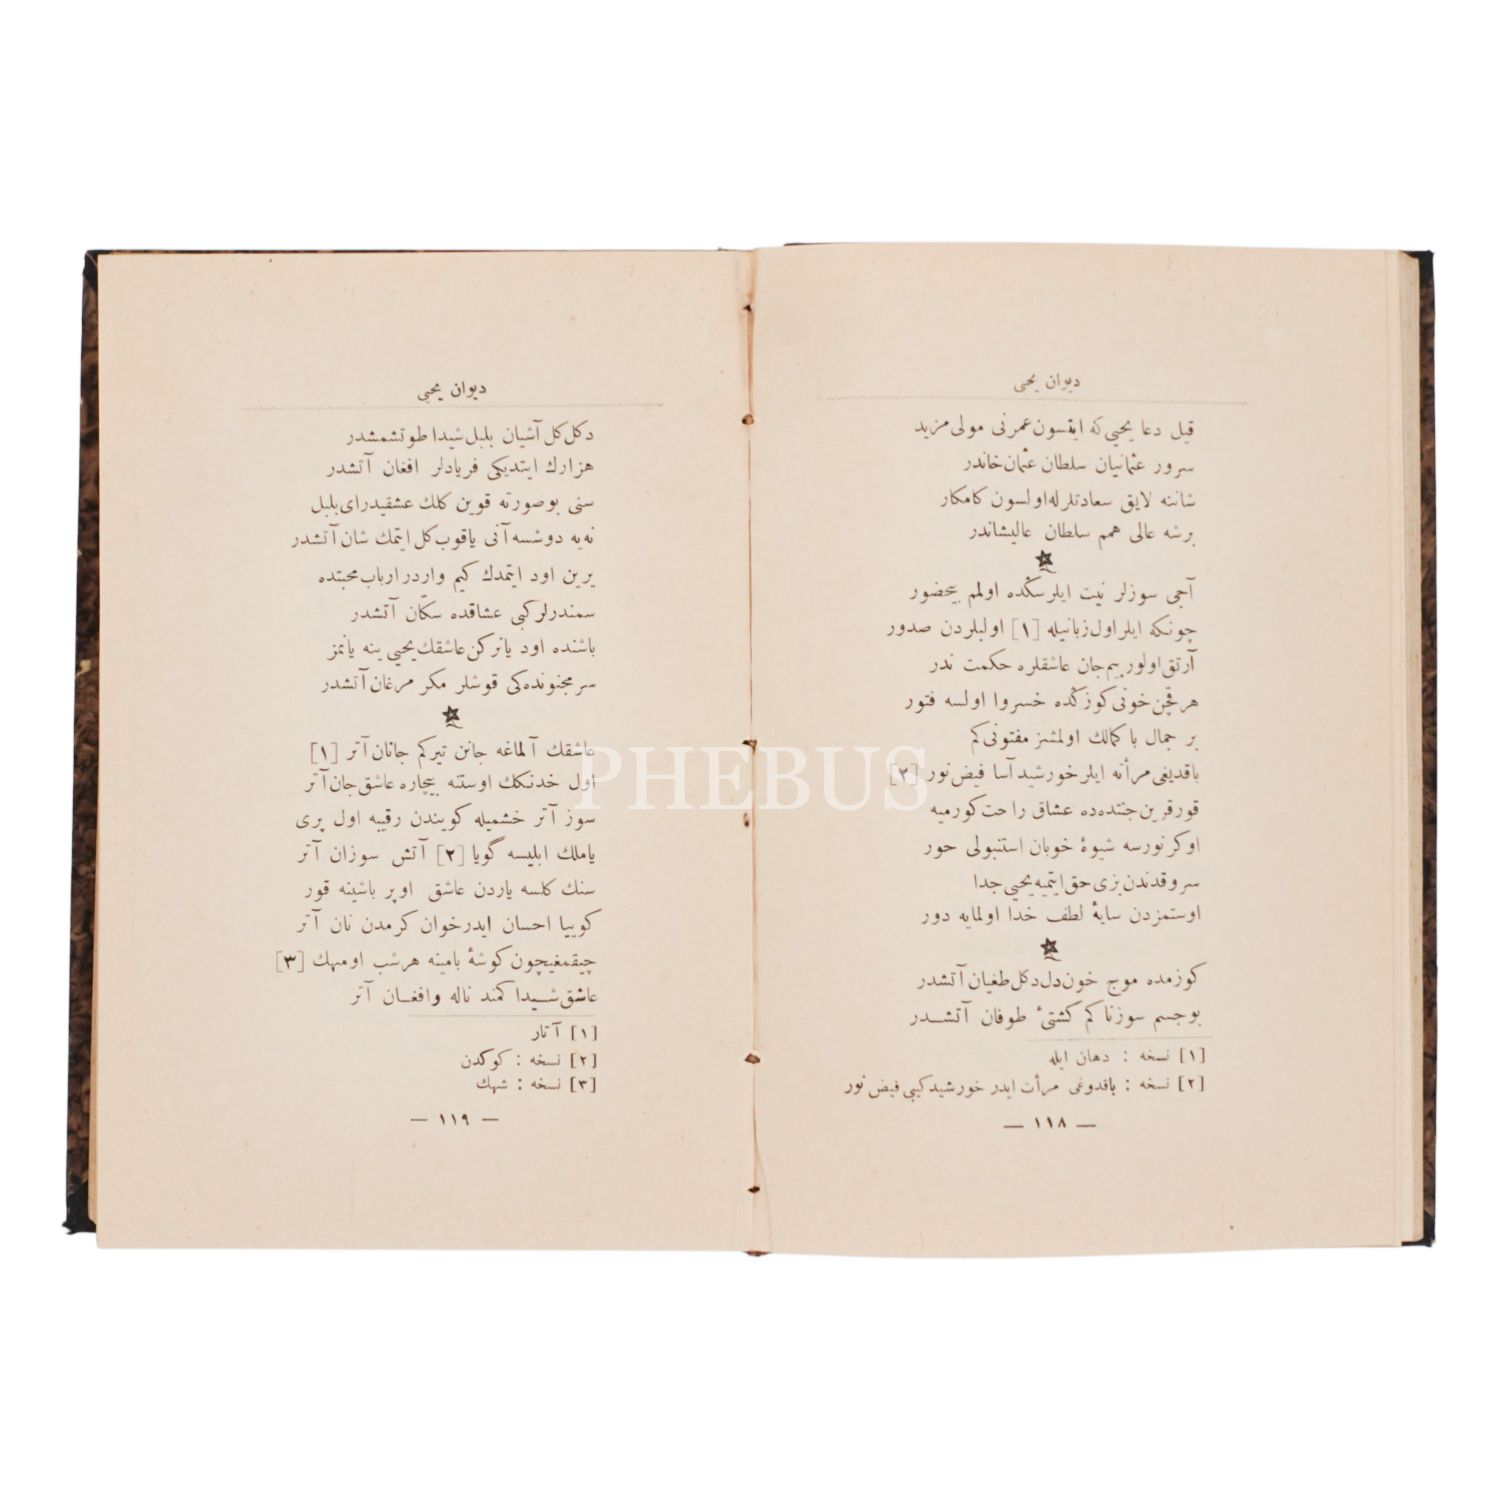 ديوان يحيى
قيل دعا يحيى كه ايتسون عمرنى مولى مزيد
سرور عثمانيان سلطان عثمان خاندر
شاننه لايق سعادتلرله اولسون كامكار
برشه عالى همم سلطان عاليشاندر
آجى سوزلر نيت ايلرسڭده اولمم بيحضور
چونكه ايلر اول زبانيله [١] اولبلردن صدور
آرتق اولور بيم جان عاشقلره حكمت ندر
هر قچن خونى كوزڭده خسروا اولسه فتور
بر جمال با كمالك اولمشز مفتونى كم
باقديغى مرأته ايلر خورشيد آسا فيض نور [٢]
قورقرين جنتده ده عشاق راحت كورميه
اوكرنورسه شيوهٔ خوبان استنبولى حور
سروقدندن بزى حق ايتميه يحيى جدا
اوستمزدن سايهٔ لطف خدا اولمايه دور
كوزمده موج خون دل دكل طغيان آتشدر
بوجسم سوزناكم كشتئ طوفان آتشدر
[١] نسخه : دهان ايله
[٢] نسخه : باقدوغى مرأت ايدر خورشيد كيبى فيض نور
— ١١٨ —
ديوان يحيى
دكل كل آشيان بلبل شيدا طوتشمشدر
هزارك ايتديكى فريادلر افغان آتشدر
سنى بوصورته قوين كلك عشقيدر اى بلبل
نه يه دوشسه آنى ياقوب كل ايتمك شان آتشدر
يرين اود ايتمدك كيم واردر ارباب محبتده
سمندرلر كبى عشاقده سكّان آتشدر
باشنده اود يانركن عاشقك يحيى ينه يانمز
سر مجنونده كى قوشلر مكر مرغان آتشدر
عاشقك آلماغه جانن تيركم جانان آتر [١]
اول خدنكك اوستنه بيچاره عاشق جان آتر
سوز آتر خشميله كويندن رقيبه اول پرى
ياملك ابليسه گويا [٢] آتش سوزان آتر
سنك كلسه ياردن عاشق اوپر باشينه قور
كوييا احسان ايدر خوان كرمدن نان آتر
چيقمغيچون كوشهٔ بامينه هر شب اومهك [٣]
عاشق شيدا كمند ناله وافغان آتر
[١] آتار
[٢] نسخه : كوكدن
[٣] نسخه : شهك
— ١١٩ —
PHEBUS